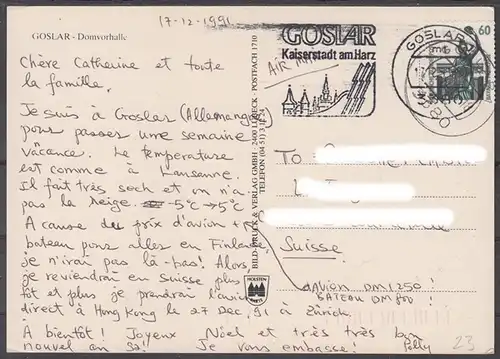 17-12-1991
GOSLAR - Domvorhalle
Chère Catherine et toute
la famille,
Je suis à Goslar (Allemangne)
pour passer une semaine
vacance. Le temperature
est comme à Lausanne.
Il fait très sech et on n'a
pas la neige. -5°C → 5°C
A cause du prix d'avion +
bateau pour aller en Finlande
je n'irai pas là-bas! Alors,
je reviendrai en Suisse plus
tôt et plus je prendrai l'avion
direct à Hong Kong le 27 Dec, 91 à Zürich
A bientôt! Joyeux Noël et très très bon
nouvel an Je vous embrasse! Polly
BILD-DRUCK & VERLAG GMBH · 2400 LÜBECK · POSTFACH 1710
TELEFON (04 51)
HOLSTEN
GOSLAR
Kaiserstadt am Harz
AIR MAIL
GOSLAR
60
TO
Suisse
AVION DM 1250!
BATEAU DM 800!
23